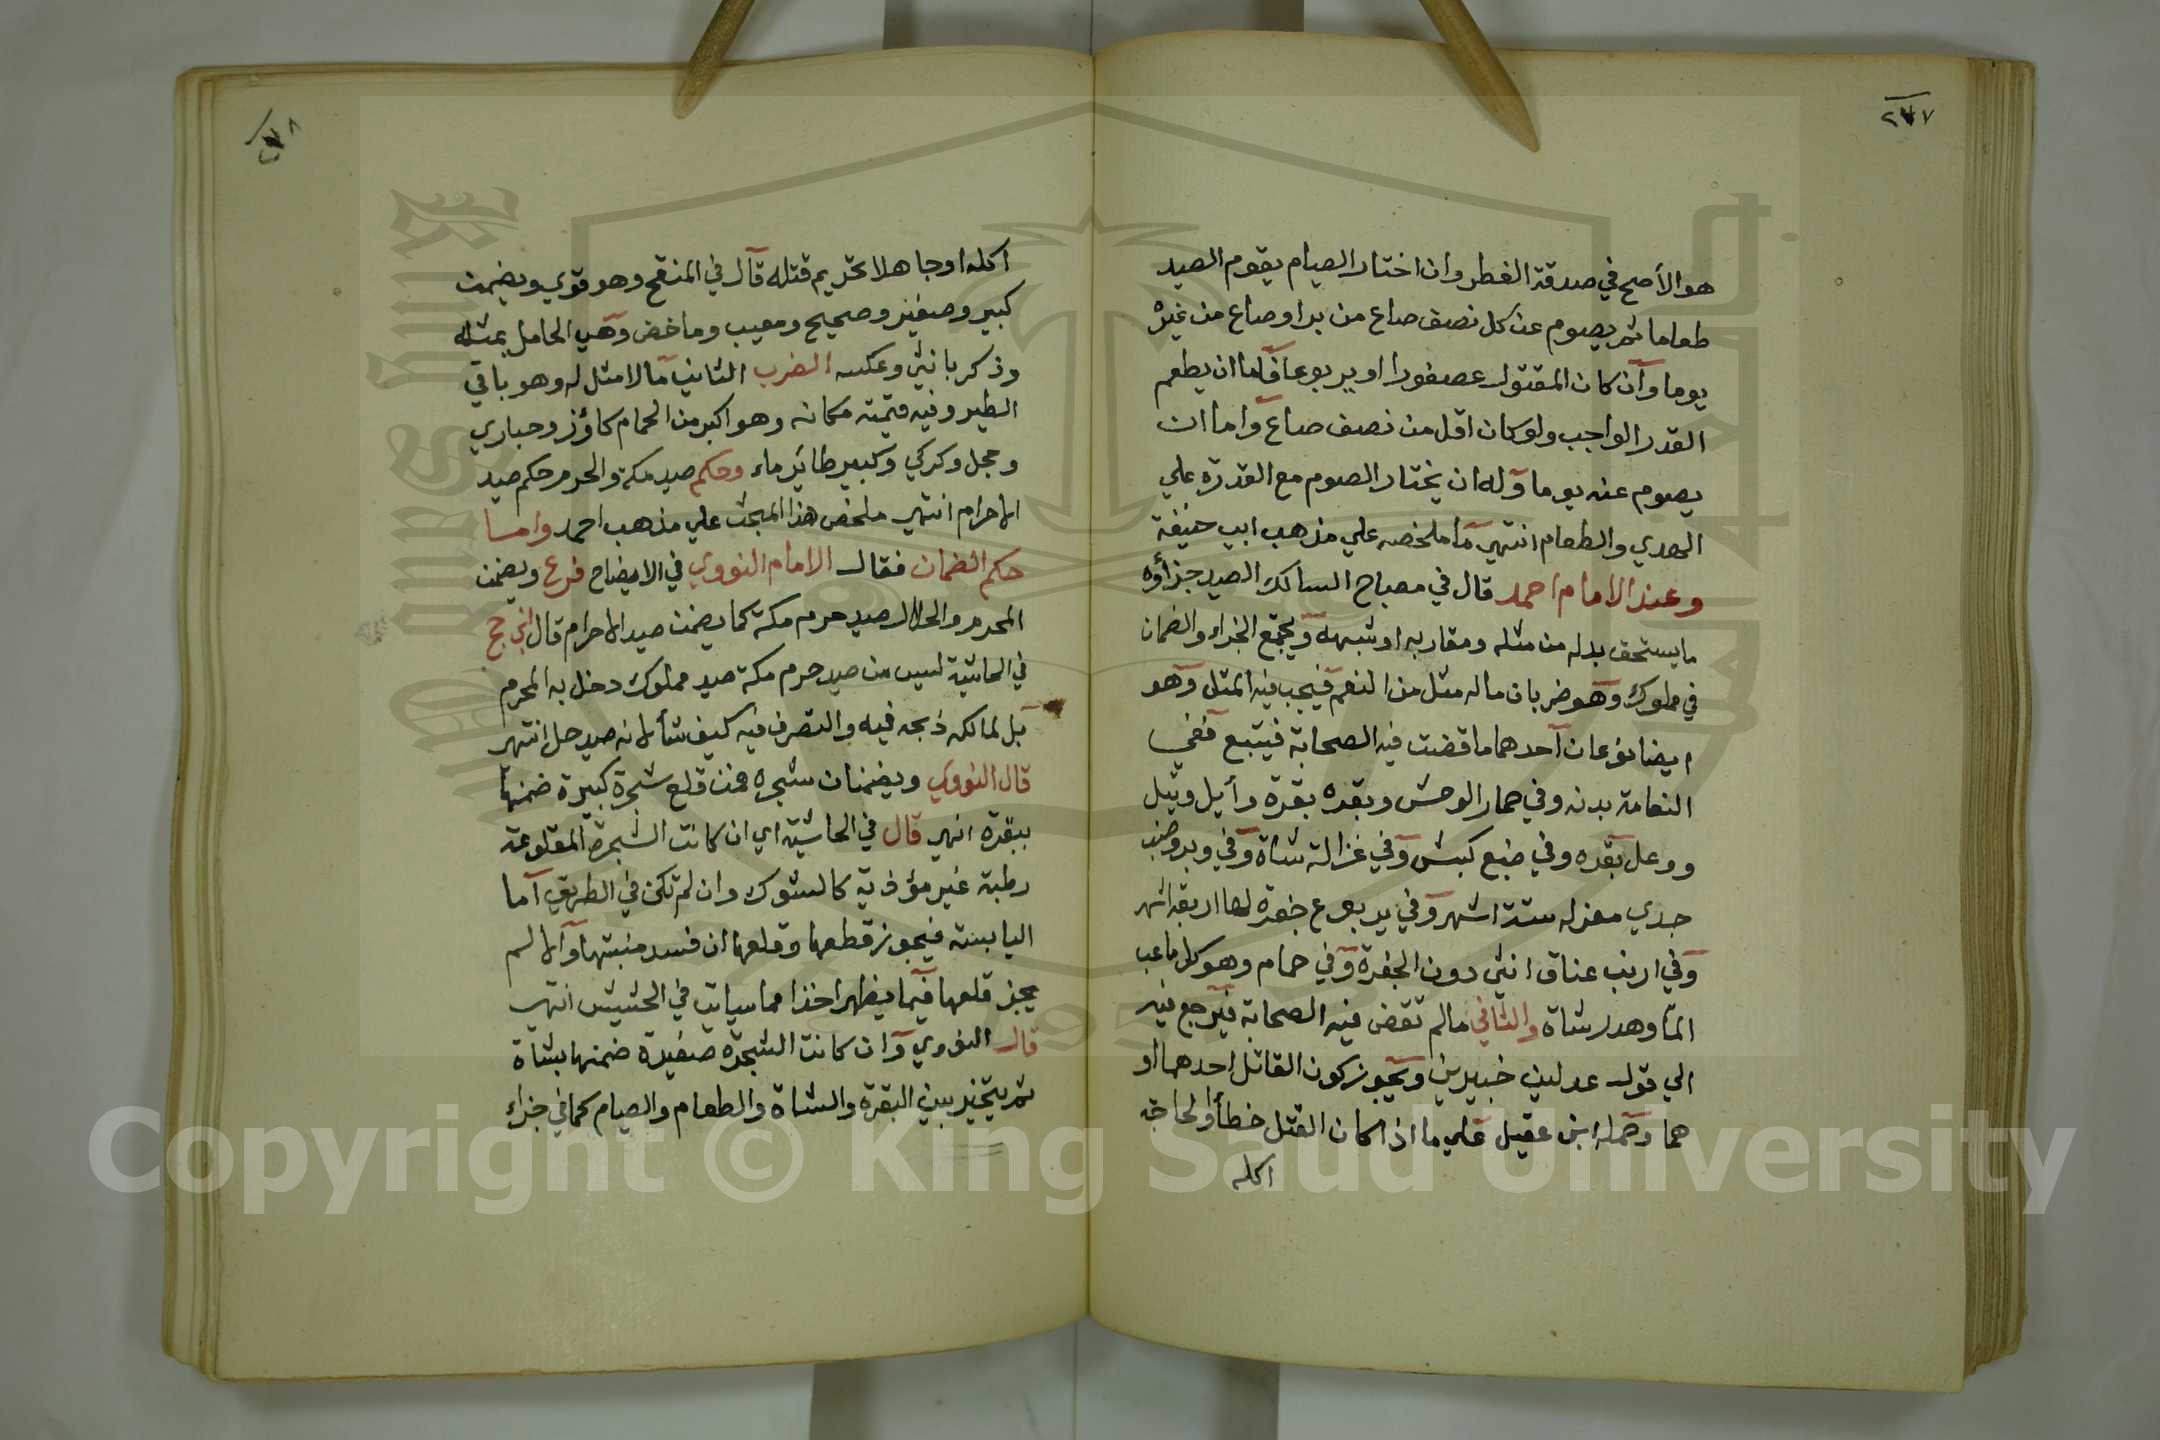 ٢٧٧
هو الأصح في صدقة الفطر وان اختار الصيام يقوم الصيد
طعاما ثم يصوم عن كل نصف صاع من بر او صاع من غيره
يوما وان كان المقتول عصفورا او يربوعا فاما ان يطعم
القدر الواجب ولو كان اقل من نصف صاع واما ان
يصوم عنه يوما وله ان يختار الصوم مع القدرة علي
الهدي والطعام انتهي ما ملخصه علي مذهب ابي حنيفة
وعند الامام احمد قال في مصباح السالك الصيد جزاؤه
ما يستحق بدله من مثله ومقاربه او شبهه ويجتمع الجزاء والضمان
في مملوك وهو ضربان ما له مثل من النعم فيجب فيه المثل وهو
ايضا نوعان احدهما ما قضت فيه الصحابة فيتبع ففي
النعامة بدنه وفي حمار الوحش وبقره بقرة وأيل وثيتل
ووعل بقره وفي ضبع كبش وفي غزالة شاة وفي وبر وضب
جدي معز له ستة اشهر وفي يربوع جفرة لها اربعة اشهر
وفي ارنب عناق انثي دون الجفرة وفي حمام وهو كل ما عب
الماء وهدر شاة والثاني ما لم تقض فيه الصحابة فيرجع فيه
الي قول عدلين خبيرين ويجوز كون القاتل احدهما او
هما وحمله ابن عقيل علي ما اذا كان القتل خطأ او لحاجة
اكله
اكله او جاهلا تحريم قتله قال في المنقح وهو قوي ويضمن
كبير وصغير وصحيح ومعيب وماخض وهي الحامل بمثله
وذكر بانثي وعكسه الضرب الثاني ما لا مثل له وهو باقي
الطير وفيه قيمته مكانه وهو اكبر من الحمام كاوز وحباري
وحجل وكركي وكبير طائر ماء وحكم صيد مكة والحرم حكم صيد
الاحرام انتهي ملخص هذا المبحث علي مذهب احمد واما
حكم الضمان فقال الامام النووي في الايضاح فرع ويضمن
المحرم والحلال صيد حرم مكة كما يضمن صيد الاحرام قال ابن حجر
في الحاشية ليس من صيد حرم مكة صيد مملوك دخل به المحرم
بل لمالكه ذبحه فيه والتصرف فيه كيف شأ لانه صيد حل انتهي
قال النووي ويضمنان شجره فمن قلع شجرة كبيرة ضمنها
ببقرة انتهي قال في الحاشية اي ان كانت الشجرة المقلوعة
رطبة غير مؤذية كالشوك وان لم تكن في الطريق اما
اليابسة فيجوز قطعها وقلعها ان فسد منبتها والا لم
يجز قلعها فيما يظهر اخذا مما سياتي في الحشيش انتهي
قال النووي وان كانت الشجرة صغيرة ضمنها بشاة
ثم يتخير بين البقرة والشاة والطعام والصيام كما في جزاء
Copyright © King Saud University
1957